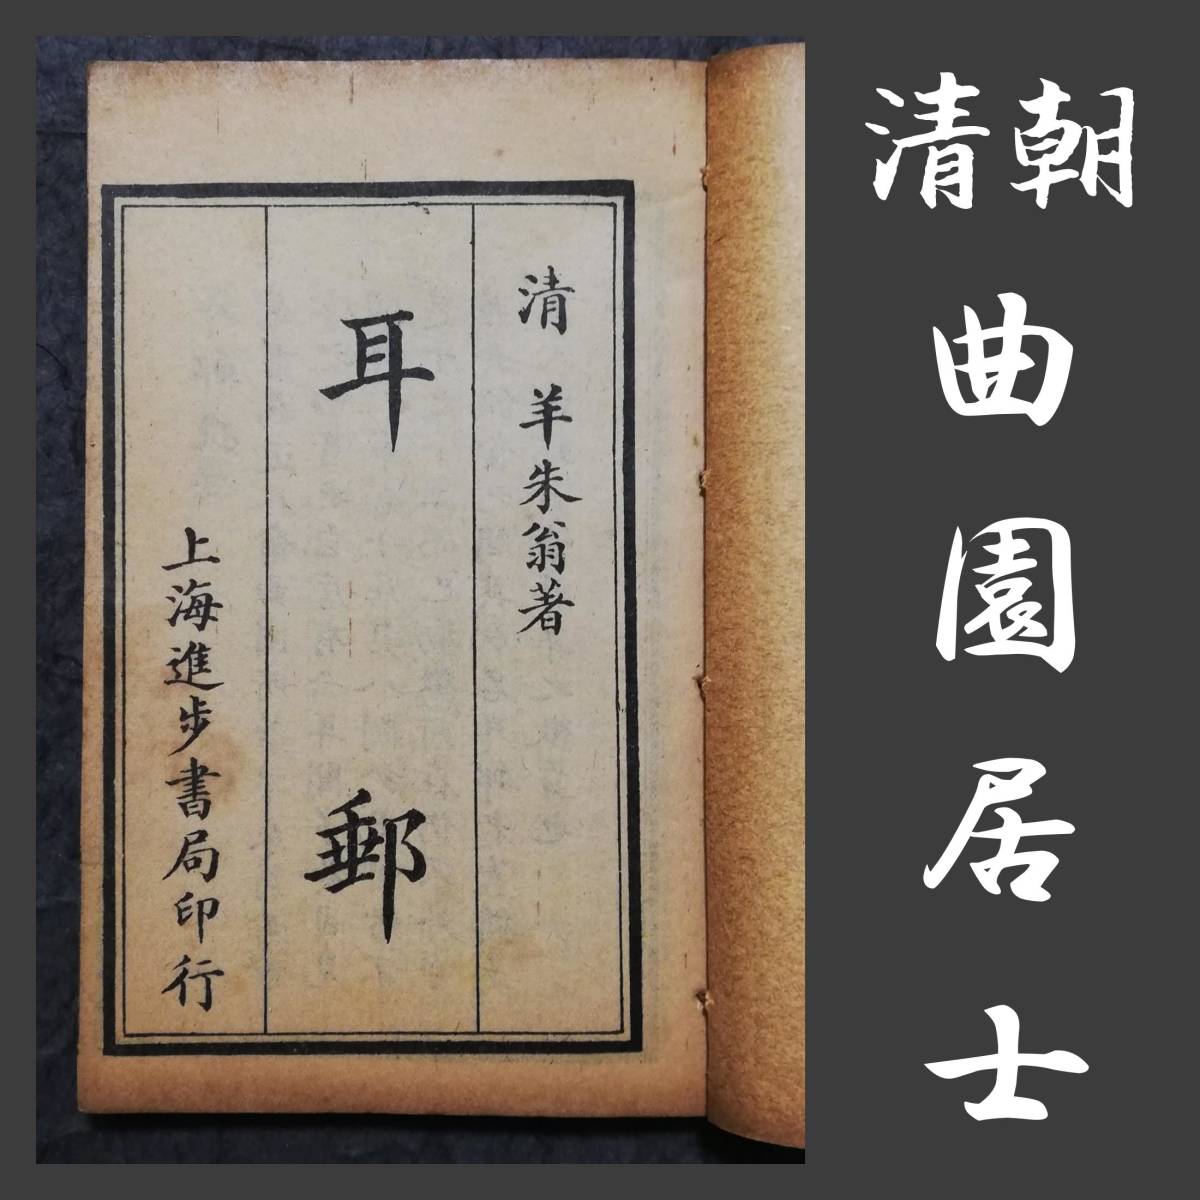 清 羊朱翁著
耳郵
上海進步書局印行
清朝
曲園居士